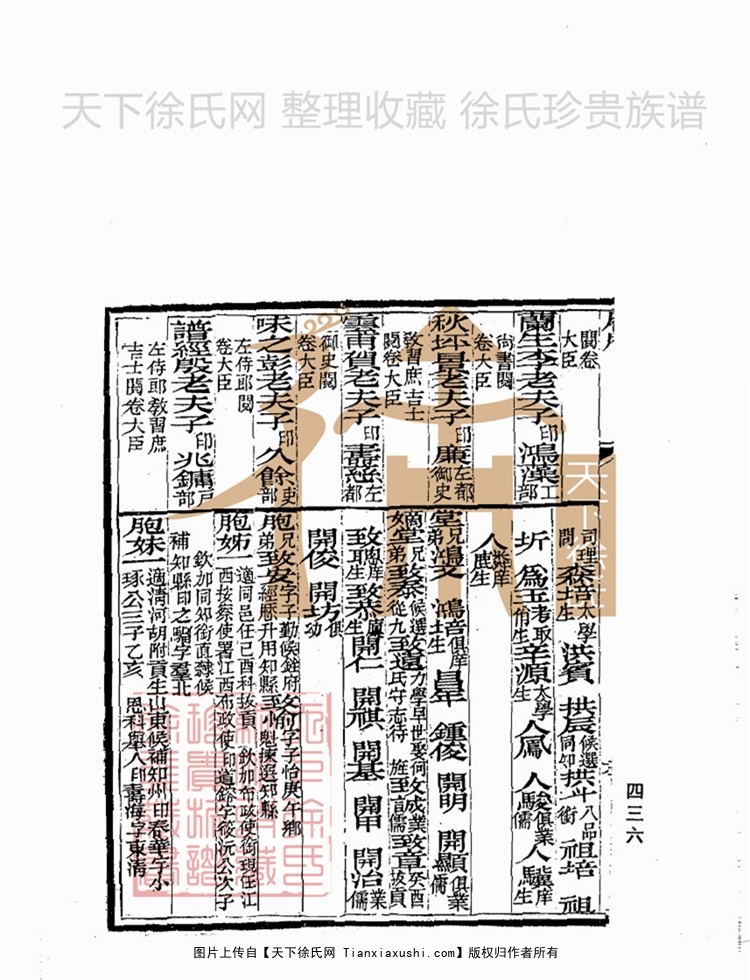 天下徐氏网 整理收藏 徐氏珍贵族谱
閱卷
大臣
蘭生李老夫子印鴻藻工部
尚書閱
卷大臣
秋坪景老夫子印廉左都御史
教習庶吉士
閱卷大臣
雲甫賀老夫子印壽慈左都
御史閱
卷大臣
味之彭老夫子印久餘吏部
左侍郎閱
卷大臣
譜經殷老夫子印兆鏞戶部
左侍郎教習庶
吉士閱卷大臣
司理問
森培太學生
洪賓 拱辰候選同知 拱斗八品銜 祖培 祖
折 為玉考取佾生 辛源太學生 人鳳 人駿俱業儒 人驥庠生
人麟庠生
堂兄弟鴻文 鴻培俱庠生 昌犖 鍾俊 開明 開顯俱業儒
嫡堂兄弟致棻候選從九 致遠力學早世娶何氏守志待旌 致言成業儒 致章癸酉拔貢
致聰庠生 致泰廩生 開仁 開祺 開基 開甲 開治業儒
開俊 開坊俱幼
胞兄弟致安字子勤候銓府經歷升用知縣 致何字子怡庚午鄉魁揀選知縣
胞姊一適同邑任己酉科拔貢 欽加布政使銜現任江
西按察使署江西布政使印道鎔字筱沅公次子
欽加同知銜直隸候
補知縣印之騮字羣北
胞妹一適清河胡附貢生山東候補知州印春華字小
琢公三子乙亥 恩科舉人印壽海字東清
四三六
天下徐氏
徐氏
图片上传自【天下徐氏网 Tianxiaxushi.com】版权归作者所有